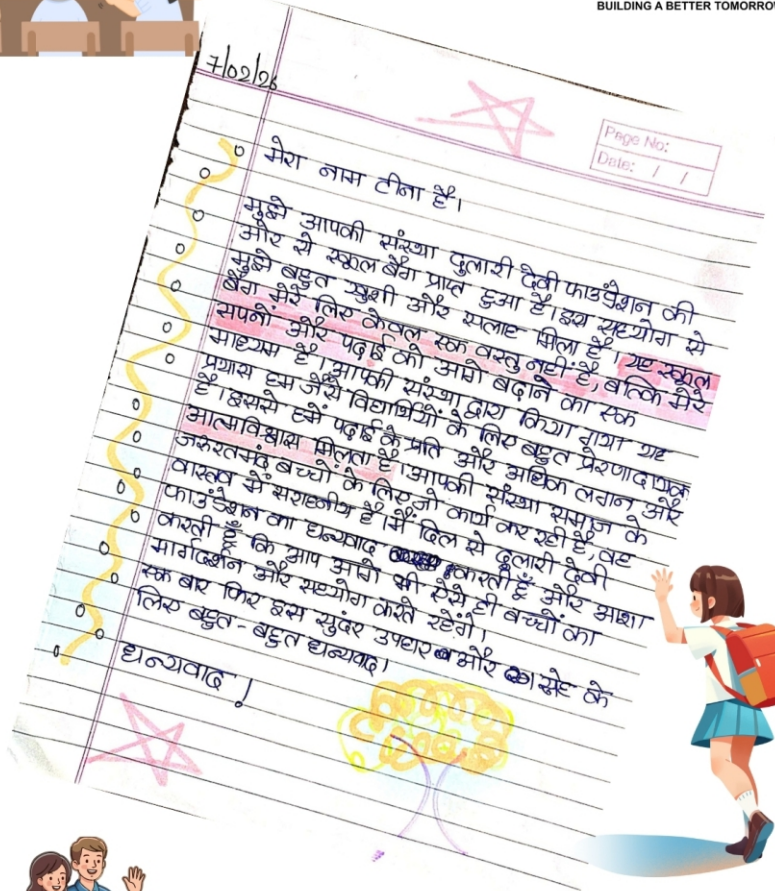 BUILDING A BETTER TOMORRO
7/02/26
Page No:
Date: / /
मेरा नाम टीना है।
मुझे आपकी संस्था दुलारी देवी फाउंडेशन की
ओर से स्कूल बैग प्राप्त हुआ है। इस सहयोग से
मुझे बहुत खुशी और सलाह मिला है। यह स्कूल
बैग मेरे लिए केवल एक वस्तु नहीं है, बल्कि मेरे
सपनों और पढ़ाई को आगे बढ़ाने का एक
माध्यम है। आपकी संस्था द्वारा किया गया यह
प्रयास हम जैसे विद्यार्थियों के लिए बहुत प्रेरणादायक
है। इससे हमें पढ़ाई के प्रति और अधिक लगन और
आत्मविश्वास मिलता है। आपकी संस्था समाज के
जरूरतमंद बच्चों के लिए जो कार्य कर रही है, वह
वास्तव में सराहनीय है। मैं दिल से दुलारी देवी
फाउंडेशन का धन्यवाद करती हूँ और आशा
करती हूँ कि आप आगे भी ऐसे ही बच्चों का
मार्गदर्शन और सहयोग करते रहेंगे।
एक बार फिर इस सुंदर उपहार और स्नेह के
लिए बहुत-बहुत धन्यवाद।
धन्यवाद!